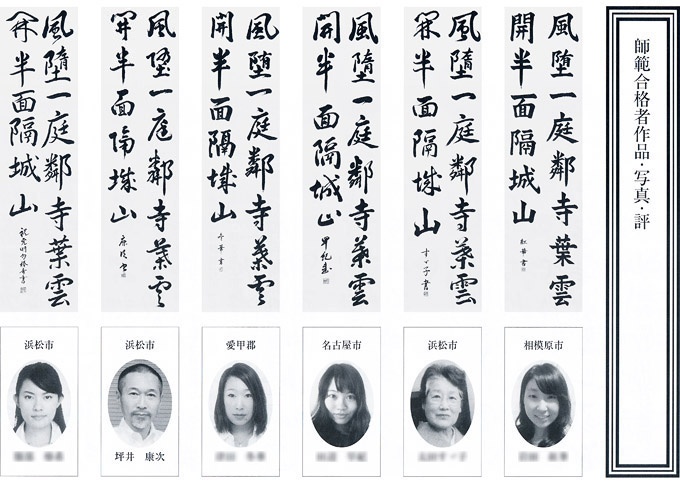 師範合格者作品・写真・評
風墮一庭鄰寺葉雲
開半面隔城山
風墮一庭鄰寺葉雲
開半面隔城山
風墮一庭鄰寺葉雲
開半面隔城山
風墮一庭鄰寺葉雲
開半面隔城山
風墮一庭鄰寺葉雲
開半面隔城山
風墮一庭鄰寺葉雲
開半面隔城山
相模原市
浜松市
名古屋市
愛甲郡
浜松市
坪井 康次
浜松市